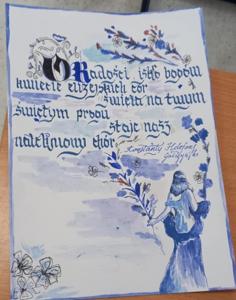 O Radości, iskro bogów
kwiecie elizejskich cór
święta na twym
świętym progu
staje nasz
natchniony chór
Konstanty Ildefons
Gałczyński